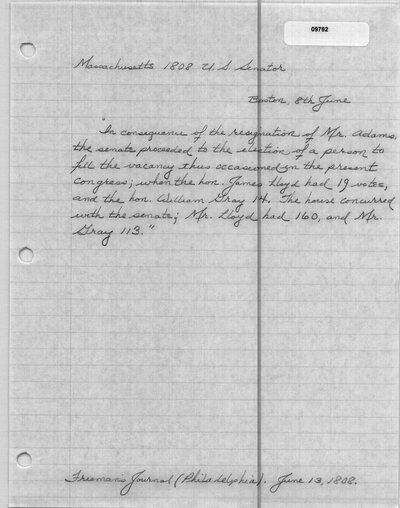 09792
Massachusetts 1808 U.S. Senator
Boston, 8th June
"In consequence of the resignation of Mr. Adams,
the senate proceeded to the election of a person to
fill the vacancy thus occasioned in the present
congress; when the hon. James Lloyd had 19 votes,
and the hon. William Gray 14. The house concurred
with the senate; Mr. Lloyd had 160, and Mr.
Gray 113."
Freeman's Journal (Philadelphia). June 13, 1808.